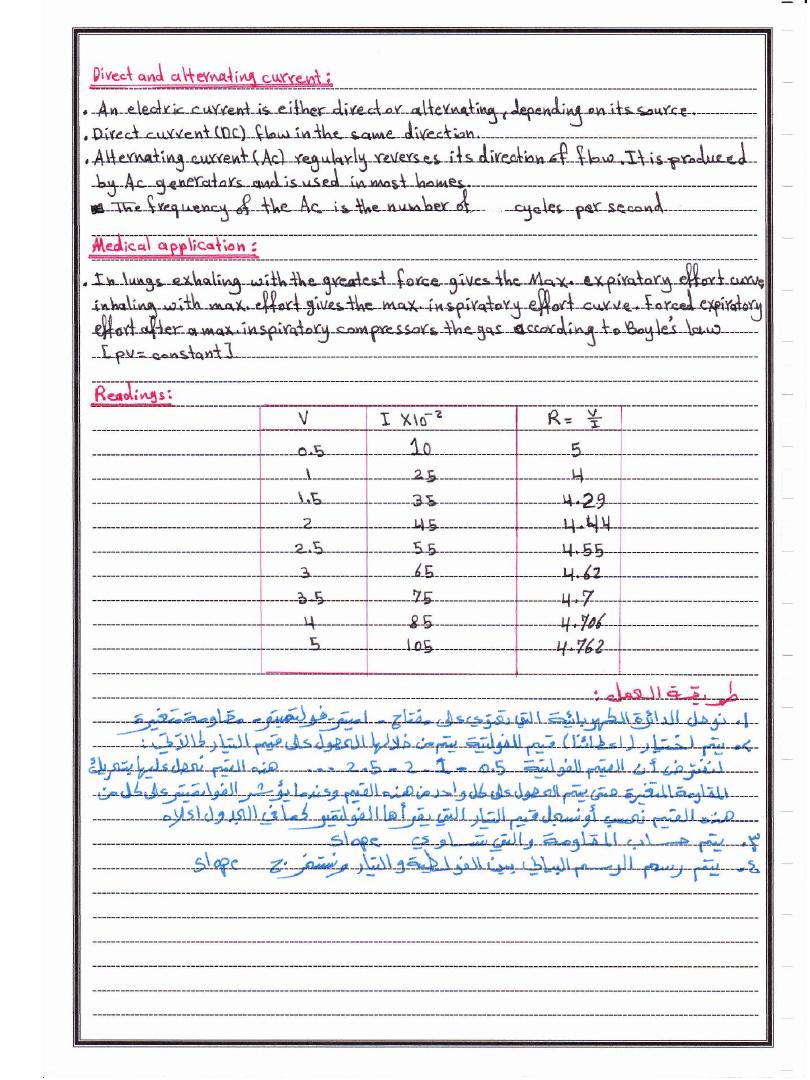 Direct and alternating current:
• An electric current is either direct or alternating, depending on its source.
• Direct current (DC) flow in the same direction.
• Alternating current (Ac) regularly reverses its direction of flow. It is produced
by Ac generators and is used in most homes.
The frequency of the Ac is the number of cycles per second
Medical application:
• In lungs exhaling with the greatest force gives the Max. expiratory effort curve,
inhaling with max. effort gives the max. inspiratory effort curve. Forced expiratory
effort after a max. inspiratory compressors the gas according to Boyle's law
[pv = constant]
Readings:
V I X10⁻² R = V/I
0.5 10 5
1 25 4
1.5 35 4.29
2 45 4.44
2.5 55 4.55
3 65 4.62
3.5 75 4.7
4 85 4.706
5 105 4.762
طريقة العمل:
١. نوصل الدائرة الكهربائية التي تحتوي على مفتاح - اميتر - فولتميتر - مقاومة متغيرة
٢. يتم اختيار (اعطائنا) قيم الفولتية يتم من خلالها الحصول على قيم التيار كالآتي:
لنفترض أن القيم الفولتية 0.5 - 1 - 2 - 2.5 ... هذه القيم نحصل عليها بتحريك
المقاومة المتغيرة حتى يتم الحصول على كل واحد من هذه القيم وعندما يؤشر الفولتميتر على كل من
هذه القيم نحسب أو نسجل قيم التيار التي يقرأها الفولتميتر كما في الجدول اعلاه
٣. يتم حساب المقاومة والتي تساوي slope
٤. يتم رسم الرسم البياني بين الفولطية والتيار ونستخرج slope